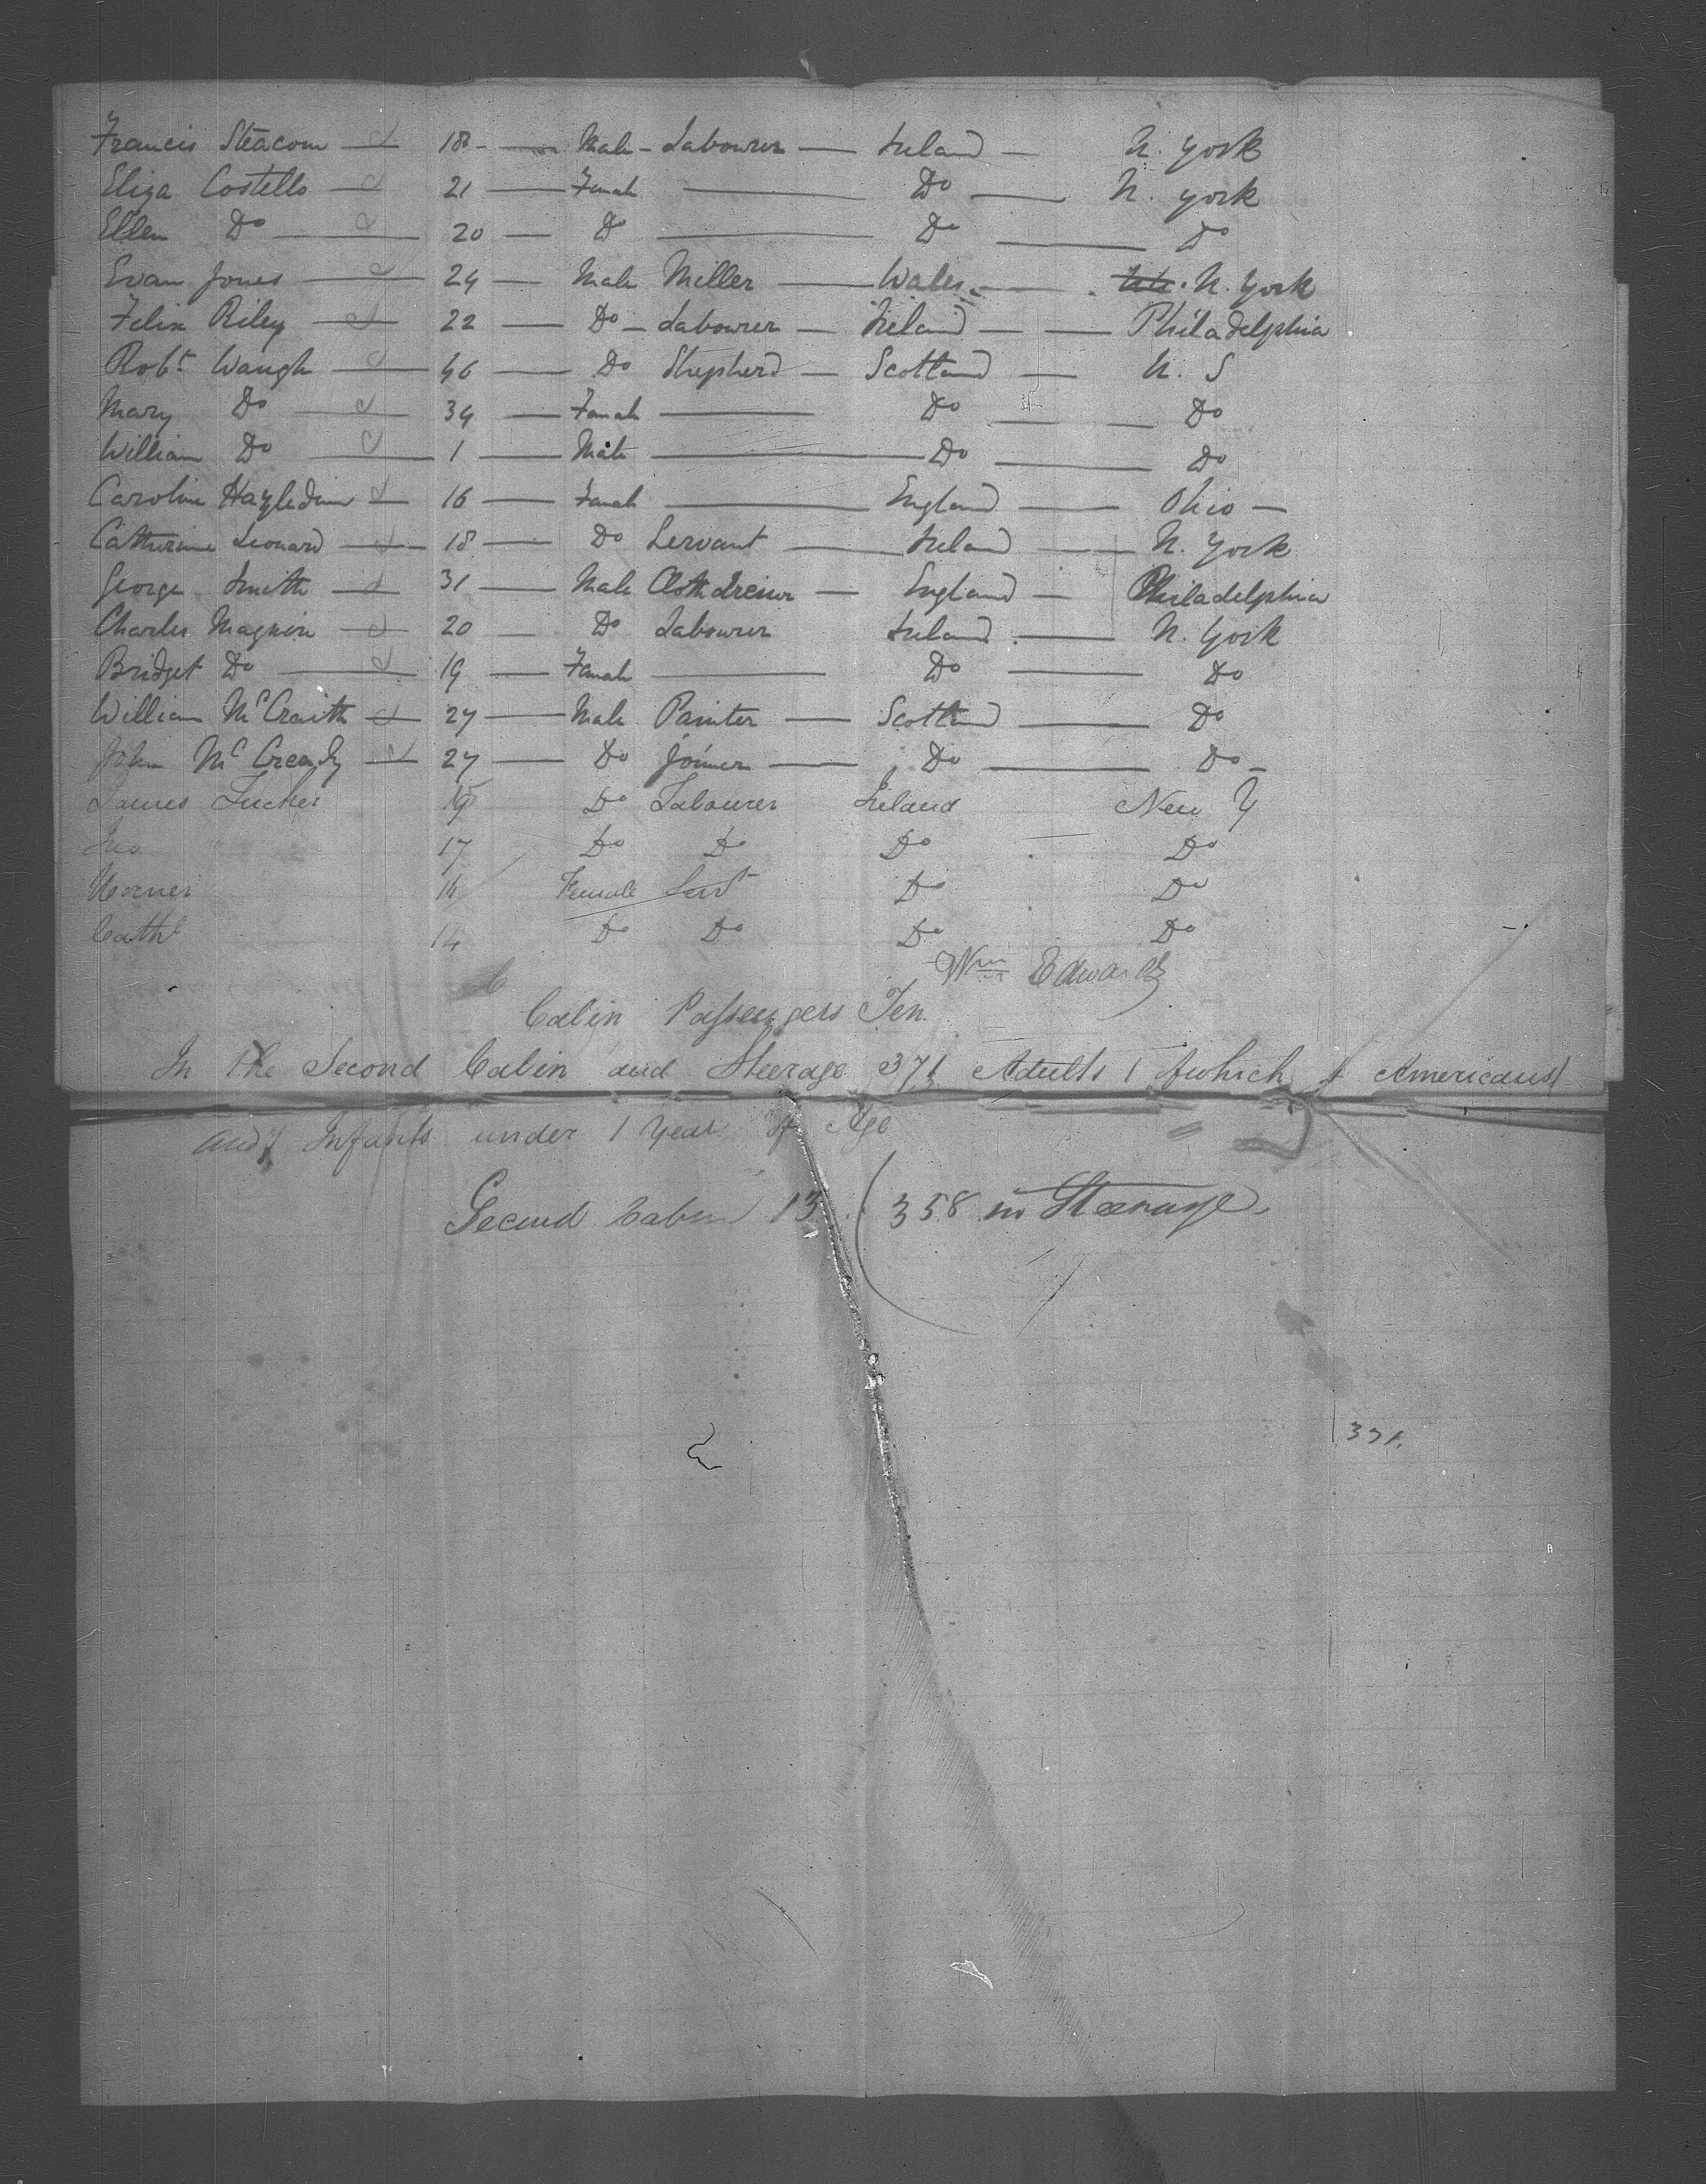 Francis Steacom — 18 — Male — Labourer — Ireland — N. York
Eliza Costello — 21 — Female — Do — N. York
Ellen Do — 20 — Do — Do — Do
Evan Jones — 24 — Male Miller — Wales — N. York
Felix Riley — 22 — Do — Labourer — Ireland — Philadelphia
Robt Waugh — 46 — Do Shepherd — Scotland — U. S
Mary Do — 34 — Female — Do — Do
William Do — 1 — Male — Do — Do
Caroline — 16 — Female — England — Ohio —
Catherine Leonard — 18 — Do Servant — Ireland — N. York
George Smith — 31 — Male Cloth dresser — England — Philadelphia
Charles Magnin — 20 — Do Labourer Ireland — N. York
Bridget Do — 19 — Female — Do — Do
William McCraith — 27 — Male Painter — Scotland — Do
John McCready — 27 — Do Joiner — Do — Do —
James Tucker 19 Do Labourer Ireland New Y
Jno " 17 Do Do Do Do
16 Female Servt Do Do
Cathe 14 Do Do Do Do
Wm Edwards
Cabin Passengers Ten.
In the Second Cabin and Steerage 371 Adults ( of which Americans)
and Infants under 1 Year of Age
Second Cabin 13 ( 358 in Steerage.
371.